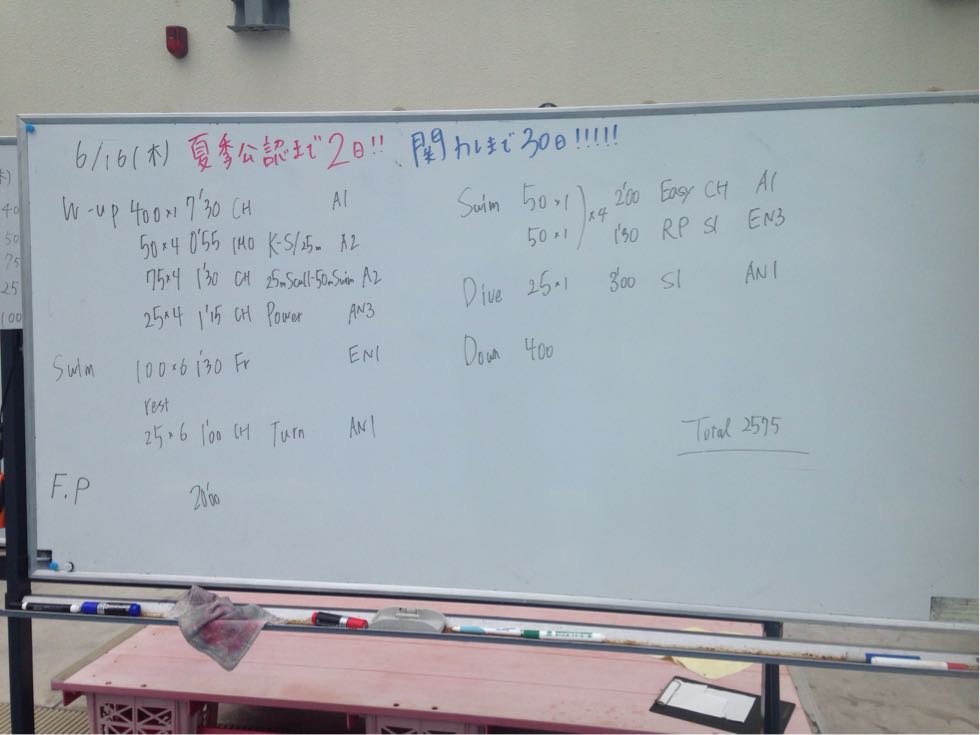 6/16(木) 夏季公認まで2日!! 関カレまで30日!!!!!
W-up 400×1 7'30 CH A1
50×4 0'55 IMO K-S/25m A2
75×4 1'30 CH 25mScull-50mSwim A2
25×4 1'15 CH Power AN3
Swim 100×6 1'30 Fr EN1
rest
25×6 1'00 CH Turn AN1
F.P 20'00
Swim 50×1 2'00 Easy CH A1
50×1 )×4 1'30 RP S1 EN3
Dive 25×1 3'00 S1 AN1
Down 400
Total 2575
40
50
75
25
100